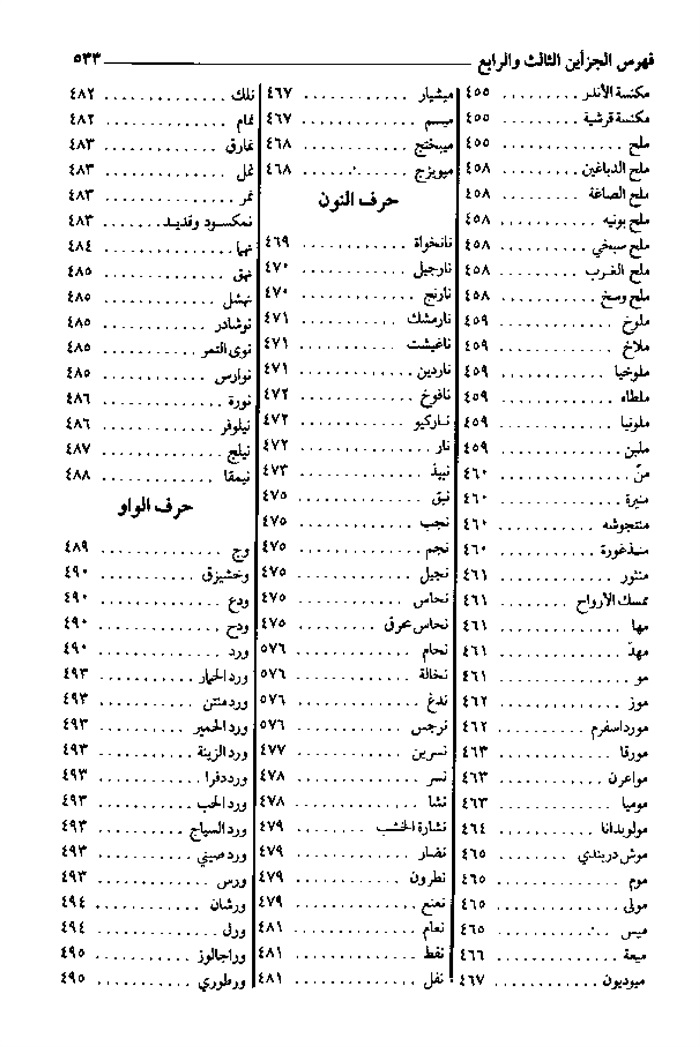 فهرس الجزأين الثالث والرابع ٥٣٣
مكنسة الأندر ٤٥٥
مكنسة قرشية ٤٥٥
ملح ٤٥٥
ملح الدباغين ٤٥٨
ملح الصاغة ٤٥٨
ملح بونيه ٤٥٨
ملح سبخي ٤٥٨
ملح الغرب ٤٥٨
ملح وسخ ٤٥٨
ملوخ ٤٥٩
ملاخ ٤٥٩
ملوخيا ٤٥٩
ملطاه ٤٥٩
ملونيا ٤٥٩
ملبن ٤٥٩
منّ ٤٦٠
منيرة ٤٦٠
منتجوشه ٤٦٠
منذغورة ٤٦٠
منثور ٤٦١
ممسك الأرواح ٤٦١
مها ٤٦١
مهدّ ٤٦١
مو ٤٦١
موز ٤٦٢
مورداسفرم ٤٦٢
مورقا ٤٦٣
مواعرن ٤٦٣
موميا ٤٦٣
مولوبدانا ٤٦٤
موش دربندي ٤٦٥
موم ٤٦٥
مولى ٤٦٥
ميس ٤٦٥
ميعة ٤٦٦
ميوديون ٤٦٧
ميشيار ٤٦٧
ميسم ٤٦٧
ميبختج ٤٦٨
ميويزج ٤٦٨
حرف النون
نانخواة ٤٦٩
نارجيل ٤٧٠
نارنج ٤٧٠
نارمشك ٤٧١
ناغيشت ٤٧١
ناردين ٤٧١
نافوخ ٤٧٢
ناركيو ٤٧٢
نار ٤٧٢
نبيذ ٤٧٣
نبق ٤٧٥
نجب ٤٧٥
نجم ٤٧٥
نجيل ٤٧٥
نحاس ٤٧٥
نحاس محرق ٤٧٥
نحام ٥٧٦
نخالة ٥٧٦
ندغ ٥٧٦
نرجس ٥٧٦
نسرين ٤٧٧
نسر ٤٧٨
نشا ٤٧٨
نشارة الخشب ٤٧٩
نضار ٤٧٩
نطرون ٤٧٩
نعنع ٤٧٩
نعام ٤٨١
نفط ٤٨١
نفل ٤٨١
نلك ٤٨٢
نمام ٤٨٢
نمارق ٤٨٣
نمل ٤٨٣
نمر ٤٨٣
نمكسود وقديد ٤٨٣
نهما ٤٨٤
نهق ٤٨٥
نهشل ٤٨٥
نوشادر ٤٨٥
نوى التمر ٤٨٥
نوارس ٤٨٥
نورة ٤٨٦
نيلوفر ٤٨٦
نيلج ٤٨٧
نيمقا ٤٨٨
حرف الواو
وج ٤٨٩
وخشيزق ٤٩٠
ودع ٤٩٠
ودح ٤٩٠
ورد ٤٩٠
ورد الحمار ٤٩٣
ورد منتن ٤٩٣
ورد الحمير ٤٩٣
ورد الزينة ٤٩٣
ورد دفرا ٤٩٣
ورد الحب ٤٩٣
ورد السياج ٤٩٣
ورد صيني ٤٩٣
ورس ٤٩٣
ورشان ٤٩٤
ورل ٤٩٤
وراجالوز ٤٩٥
ورطوري ٤٩٥